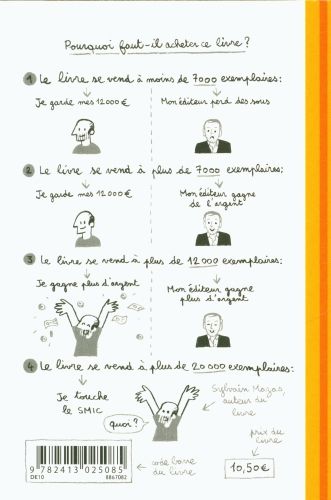 Pourquoi faut-il acheter ce livre ?
1 Le livre se vend à moins de 7000 exemplaires :
Je garde mes 12000 €
Mon éditeur perd des sous
2 Le livre se vend à plus de 7000 exemplaires :
Je garde mes 12000 €
Mon éditeur gagne
de l'argent
3 Le livre se vend à plus de 12000 exemplaires :
Je gagne plus d'argent
Mon éditeur gagne
plus d'argent
4 Le livre se vend à plus de 20000 exemplaires :
Je touche
le SMIC
quoi ?
Sylvain Mazas,
auteur du
livre
prix du
livre
code barre
du livre
10,50€
9 782413 025085
DE10
8867082